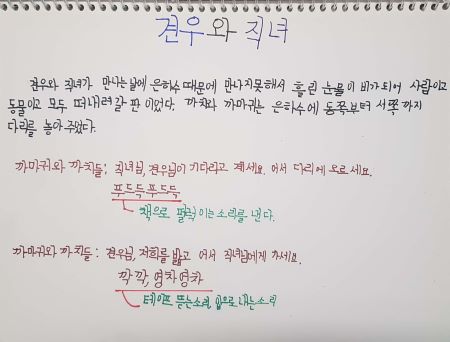 견우와 직녀
견우와 직녀가 만나는날에 은하수 때문에 만나지못해서 흘린 눈물이 비가되어 사람이고
동물이고 모두 떠내려갈 판 이었다. 까치와 까마귀는 은하수에 동쪽부터 서쪽까지
다리를 놓아 주었다.
까마귀와 까치들: 직녀님, 견우님이 기다리고 계세요. 어서 다리에 오르세요.
푸드득푸드득
책으로 펄럭이는소리를 낸다.
까마귀와 까치들: 견우님, 저희를 밟고 어서 직녀님에게 가세요.
깍깍, 영차영차
테이프 뜯는소리, 입으로 내는소리